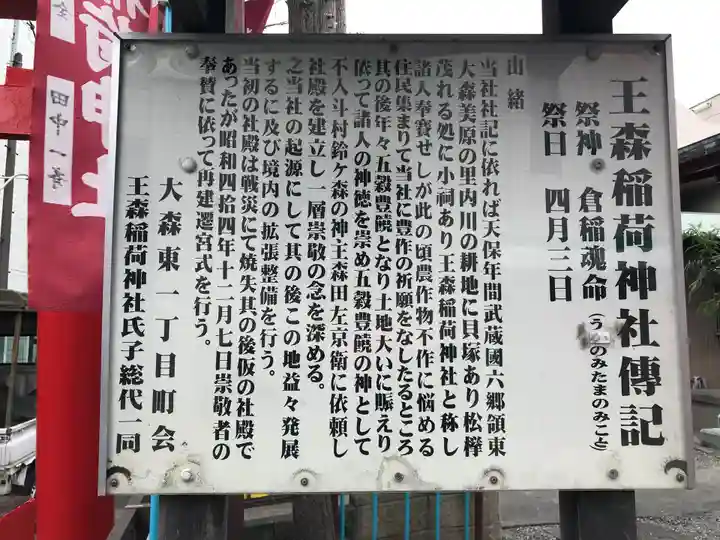 王森稲荷神社傳記
祭神 倉稲魂命（うかのみたまのみこと）
祭日 四月三日
由緒
当社社記に依れば天保年間武蔵國六郷領東
大森美原の里内川の耕地に貝塚あり松欅
茂れる処に小祠あり王森稲荷神社と称し
諸人奉賽せしが此の頃農作物不作に悩める
住民集まりて当社に豊作の祈願をなしたるところ
其の後年々五穀豊饒となり土地大いに賑えり
依って諸人の神徳を崇め五穀豊饒の神として
不入斗村鈴ヶ森の神主森田左京衛に依頼し
社殿を建立し一層崇敬の念を深める。
之当社の起源にして其の後この地益々発展
するに及び境内の拡張整備を行う。
当初の社殿は戦災にて焼失其の後仮の社殿で
あったが昭和四拾四年十二月七日崇敬者の
奉賛に依って再建遷宮式を行う。
大森東一丁目町会
王森稲荷神社氏子総代一同
稲荷神社
田中一